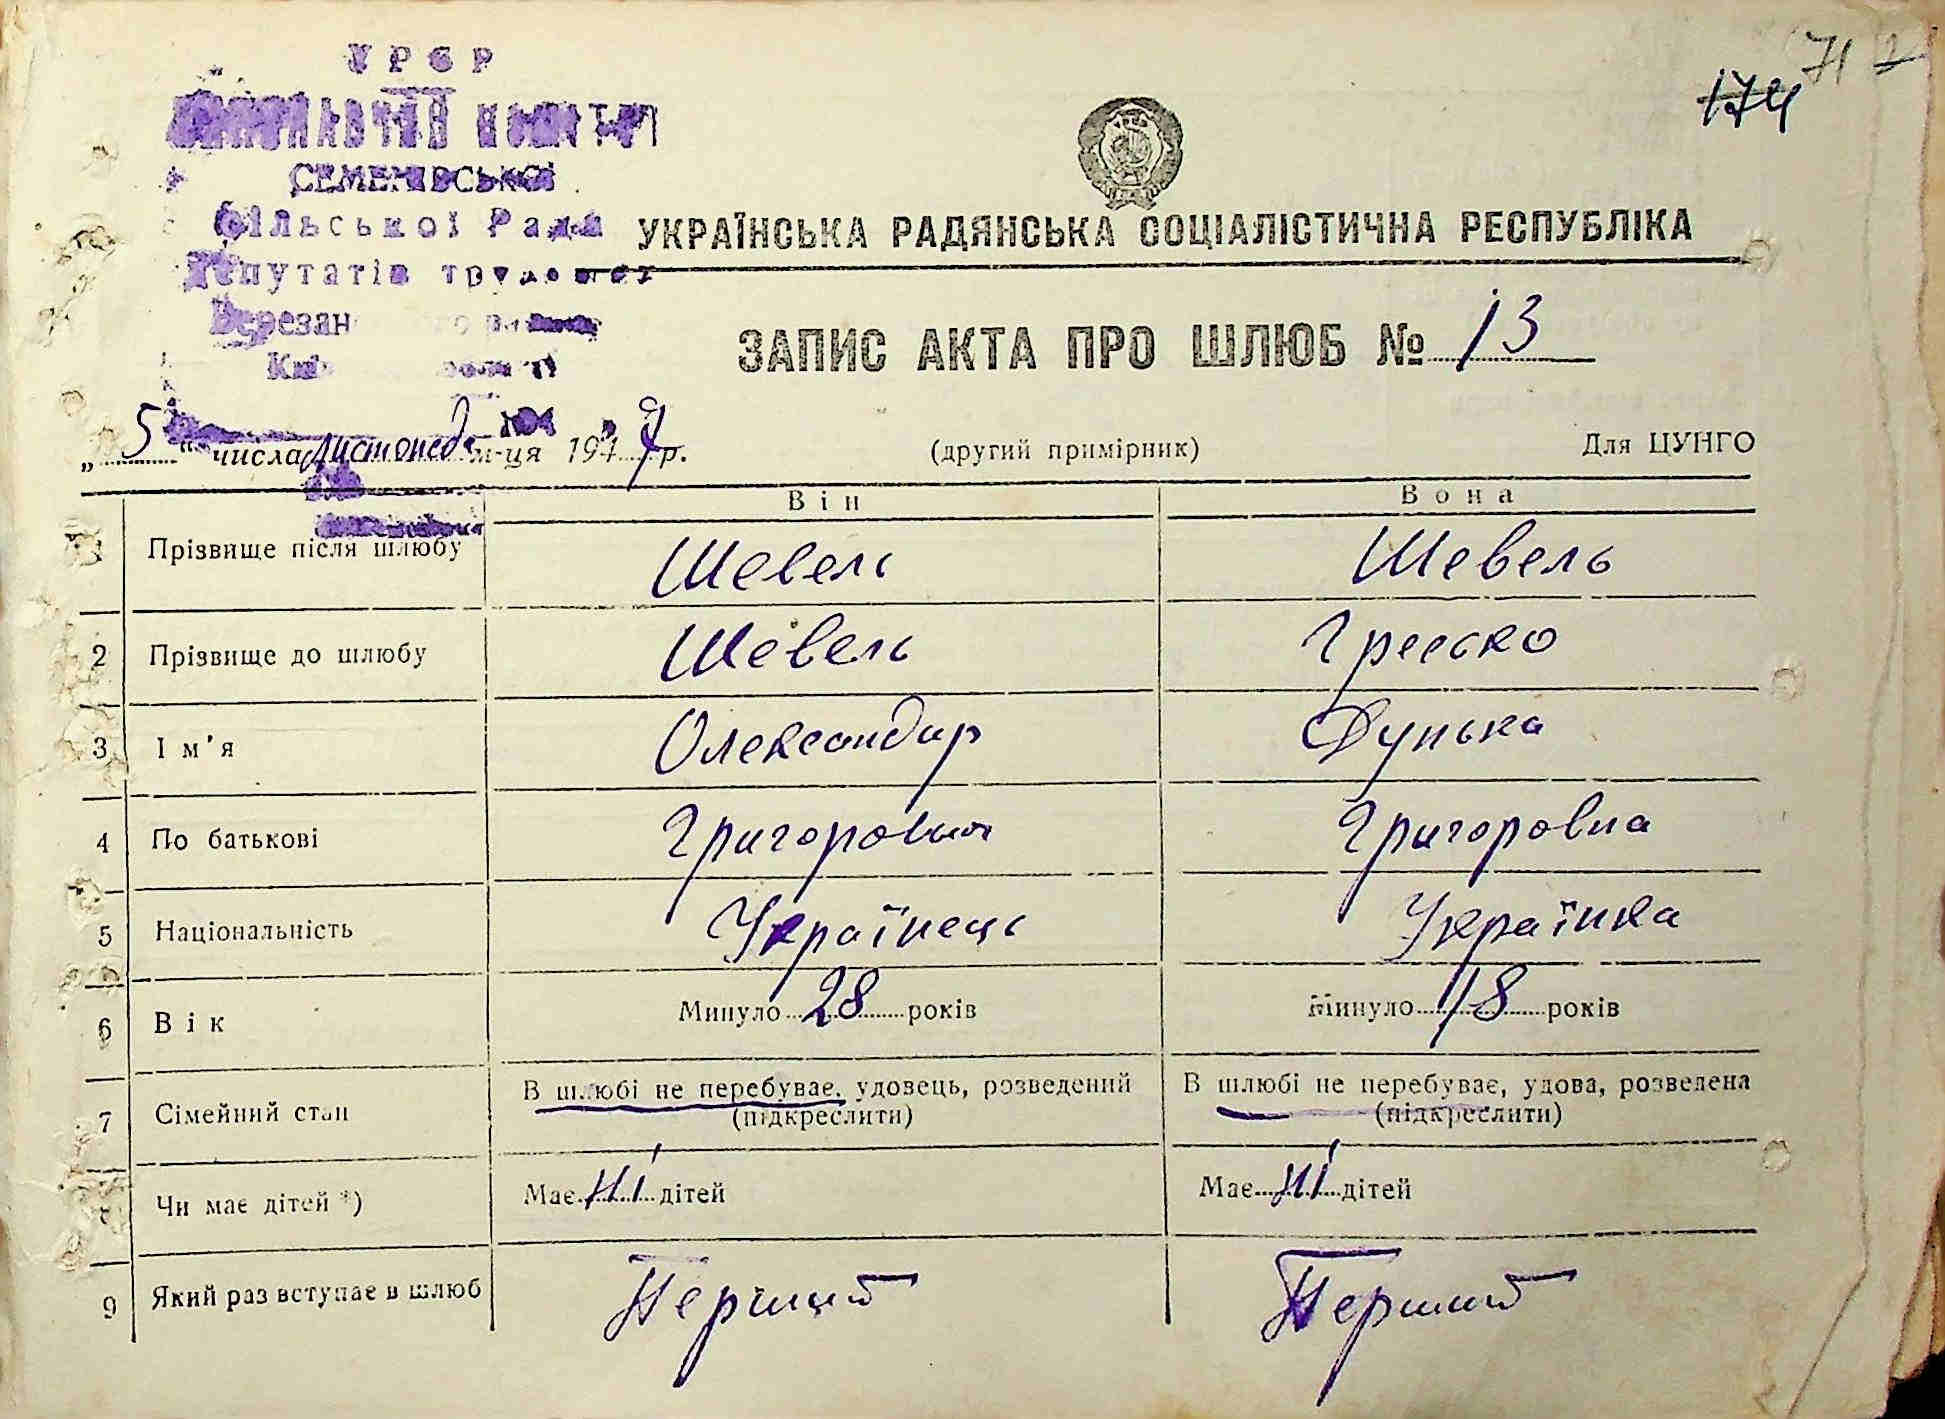 71
174
УРСР
СЕМЕНІВСЬКОЇ
сільської Ради
Депутатів трудящих
УКРАЇНСЬКА РАДЯНСЬКА СОЦІАЛІСТИЧНА РЕСПУБЛІКА
ЗАПИС АКТА ПРО ШЛЮБ № 13
„5“ числа листопада м-ця 194 р.
(другий примірник)
Для ЦУНГО
Він Вона
Прізвище після шлюбу Шевель Шевель
2 Прізвище до шлюбу Шевель
3 Ім'я Олександр Дунька
4 По батькові Григорович Григоровна
5 Національність Українець Українка
6 Вік Минуло 28 років Минуло 18 років
7 Сімейний стан В шлюбі не перебуває, удовець, розведений В шлюбі не перебуває, удова, розведена
(підкреслити) (підкреслити)
Чи має дітей *) Має ні дітей Має ні дітей
9 Який раз вступає в шлюб Перший Перший